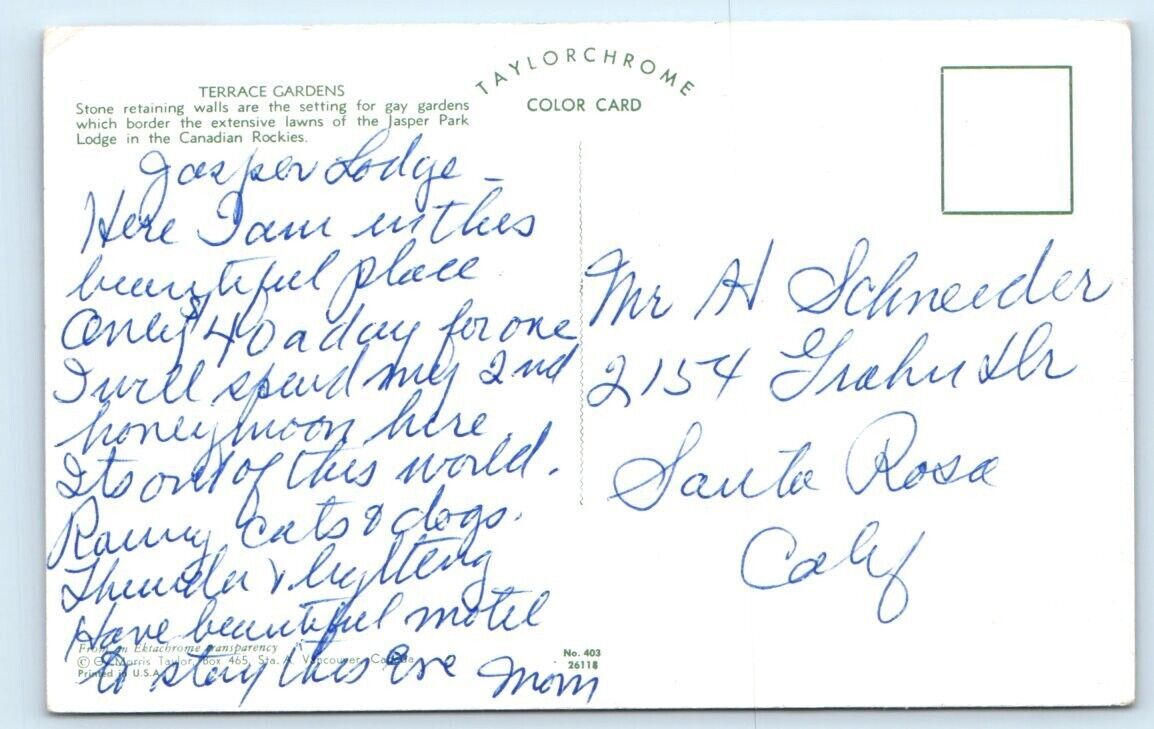 TERRACE GARDENS
Stone retaining walls are the setting for gay gardens
which border the extensive lawns of the Jasper Park
Lodge in the Canadian Rockies.
TAYLORCHROME
COLOR CARD
Jasper Lodge –
Here I am in this
beautiful place
Only $40 a day for one
I will spend my 2nd
honeymoon here
Its out of this world.
Rainy cats & dogs.
Thunder & lighteng
Have beautiful motel
to stay this Eve Mom
Mr H Schneider
2154 Grahn Dr
Santa Rosa
Calif
From an Ektachrome transparency
© G. Morris Taylor, Box 465, Sta. A, Vancouver, Canada
Printed in U.S.A.
No. 403
26118